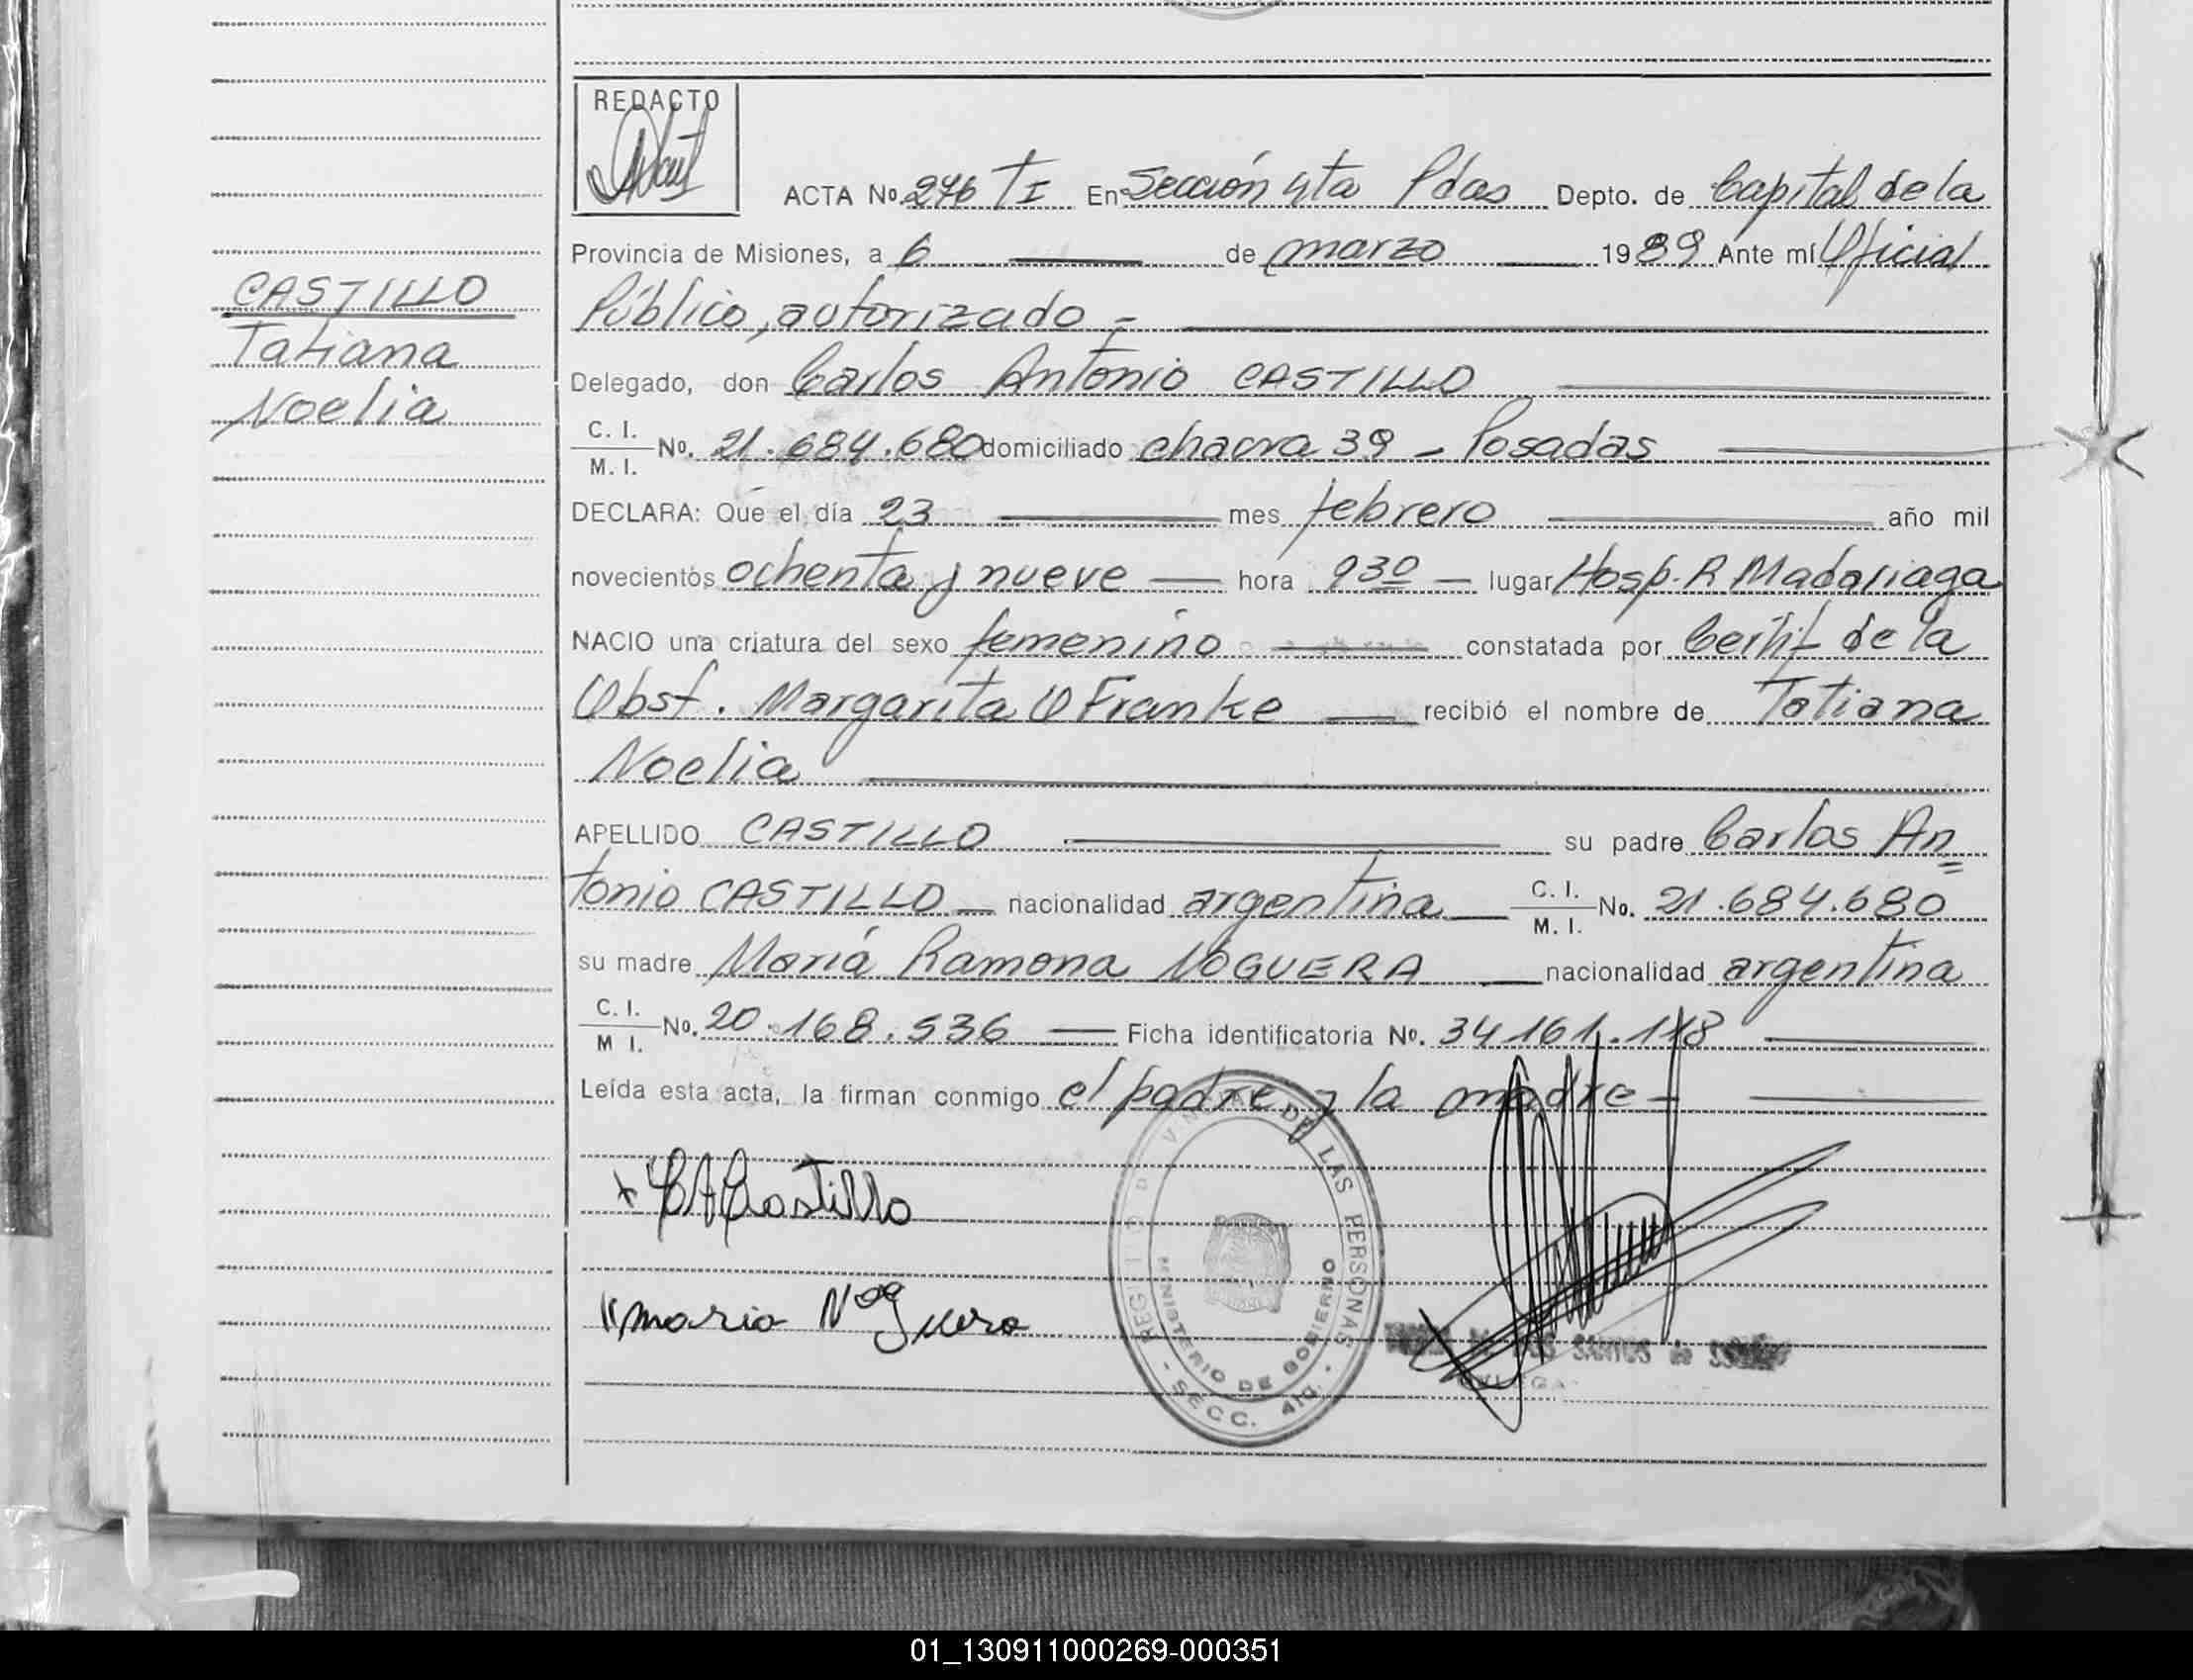 REDACTO
ACTA No. 276 TI En Sección 4ta Pdas Depto. de Capital de la
Provincia de Misiones, a 6 de marzo 1989 Ante mí Oficial
Público, autorizado -
CASTILLO
Tatiana
Noelia
Delegado, don Carlos Antonio CASTILLO
C. I. / M. I. No. 21.684.680 domiciliado chacra 39 - Posadas
DECLARA: Que el día 23 mes febrero año mil
novecientos ochenta y nueve hora 930 lugar Hosp. R Madariaga
NACIO una criatura del sexo femenino constatada por Certif de la
Obst. Margarita O Franke recibió el nombre de Tatiana
Noelia
APELLIDO CASTILLO su padre Carlos An=
tonio CASTILLO nacionalidad argentina C. I. / M. I. No. 21.684.680
su madre María Ramona NOGUERA nacionalidad argentina
C. I. / M I. No. 20.168.536 Ficha identificatoria No. 34161.118
Leída esta acta, la firman conmigo el padre y la madre -
CACastillo
maria Noguera
DE LAS PERSONAS
MINISTERIO DE GOBIERNO
SECC. 4ta.
SANTOS de
01_130911000269-000351